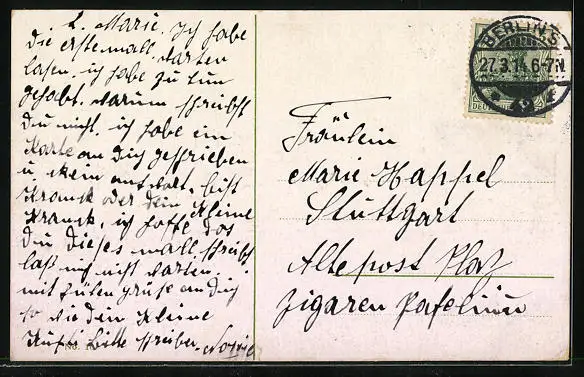 L. Marie. Ich habe
die erstemall warten
lasen. ich habe zu tun
gehabt. warum schreibst
Du nicht, ich habe ein
Karte an Dich geschrieben
u. kein antwort, bist
Krank oder dein Kleine
Krank, ich hoffe das
Du dieses mall schreibst
laß mich nicht warten.
mit guten gruse an dich
so wie dein Kleine
bitte schreiben
BERLIN S
27.3.14.6-7N
42
Fräulein
Marie Happel
Stuttgart
Altepost Plaz
Zigaren